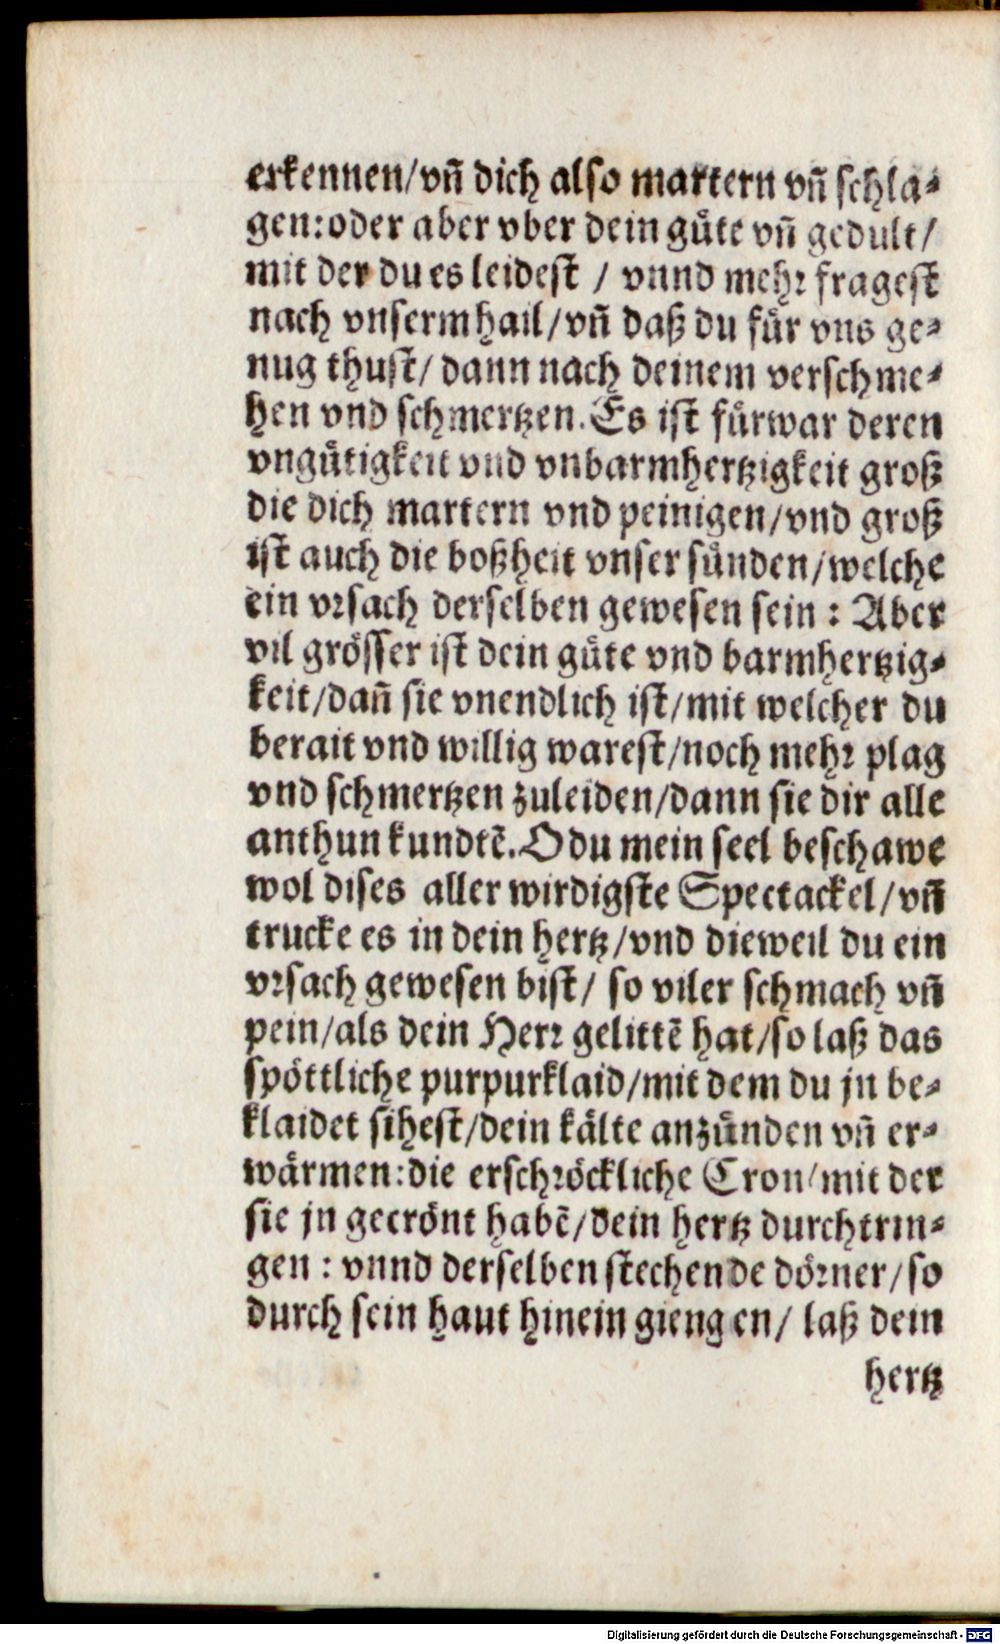 erkennen/vn̄ dich also martern vn̄ schla⸗
gen: oder aber vber dein gůte vn̄ gedult/
mit der du es leidest / vnnd mehr fragest
nach vnserm hail/vn̄ daß du fůr vns ge⸗
nug thust/ dann nach deinem verschme⸗
hen vnd schmertzen. Es ist fůrwar deren
vngůtigkeit vnd vnbarmhertzigkeit groß
die dich martern vnd peinigen/vnd groß
ist auch die boßheit vnser sůnden/welche
ein vrsach derselben gewesen sein : Aber
vil grösser ist dein gůte vnd barmhertzig⸗
keit/dan̄ sie vnendlich ist/mit welcher du
berait vnd willig warest/noch mehr plag
vnd schmertzen zuleiden/dann sie dir alle
anthun kundtē. O du mein seel beschawe
wol dises aller wirdigste Spectackel/vn̄
trucke es in dein hertz/vnd dieweil du ein
vrsach gewesen bist/ so viler schmach vn̄
pein/als dein Herr gelittē hat/so laß das
spöttliche purpurklaid/mit dem du jn be⸗
klaidet sihest/dein kälte anzůnden vn̄ er⸗
wärmen: die erschröckliche Cron/mit der
sie jn gecrönt habē/dein hertz durchtrin⸗
gen : vnnd derselben stechende dörner/so
durch sein haut hinein giengen/ laß dein
hertz
Digitalisierung gefördert durch die Deutsche Forschungsgemeinschaft - DFG